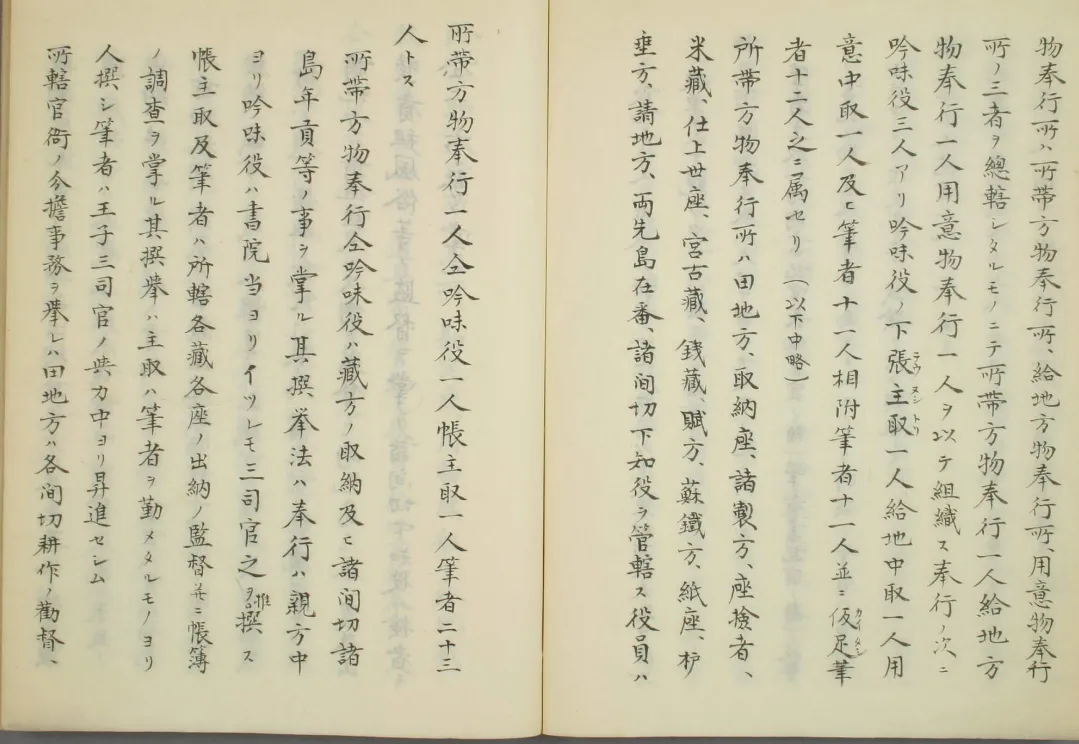 物奉行所ハ所帯方物奉行所、給地方物奉行所、用意物奉行
所ノ三者ヲ總轄シタルモノニテ所帯方物奉行一人給地方
物奉行一人用意物奉行一人ヲ以テ組織ス奉行ノ次ニ
吟味役三人アリ吟味役ノ下張主取一人給地中取一人用
意中取一人及ヒ筆者十一人相附筆者十一人並ニ仮足筆
者十二人之ニ属セリ(以下中略)
所帯方物奉行所ハ田地方、取納座、諸製方、座検者、
米藏、仕上世座、宮古藏、銭藏、賦方、蘇鐵方、紙座、枦
垂方、請地方、両先島在番、諸间切下知役ヲ管轄ス役員ハ
所帯方物奉行一人仝吟味役一人帳主取一人筆者二十三
人トス
所帯方物奉行仝吟味役ハ藏方ノ取納及ヒ諸间切諸
島年貢等ノ事ヲ掌ル其撰挙法ハ奉行ハ親方中
ヨリ吟味役ハ書院当ヨリイツレモ三司官之ヲ推撰ス
帳主取及筆者ハ所轄各藏各座ノ出納ノ監督並ニ帳簿
ノ調査ヲ掌ル其撰擧ハ主取ハ筆者ヲ勤メタルモノヨリ
人撰シ筆者ハ王子三司官ノ與力中ヨリ昇進セシム
所轄官衙ノ分擔事務ヲ擧レハ田地方ハ各间切耕作ノ勸督、